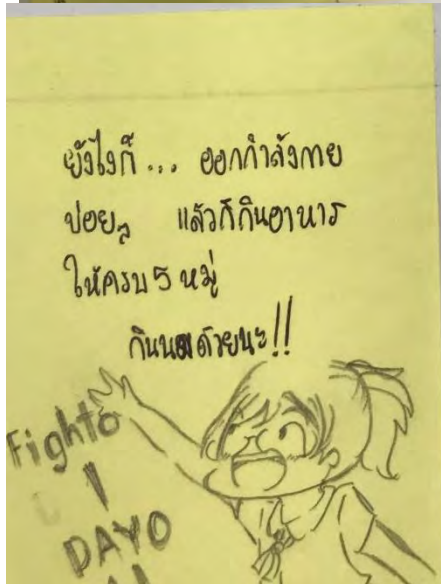 ยังไงก็... ออกกำลังกาย
บ่อยๆ แล้วก็กินอาหาร
ให้ครบ 5 หมู่
กินนมด้วยนะ!!
Fighto
DAYO
!!